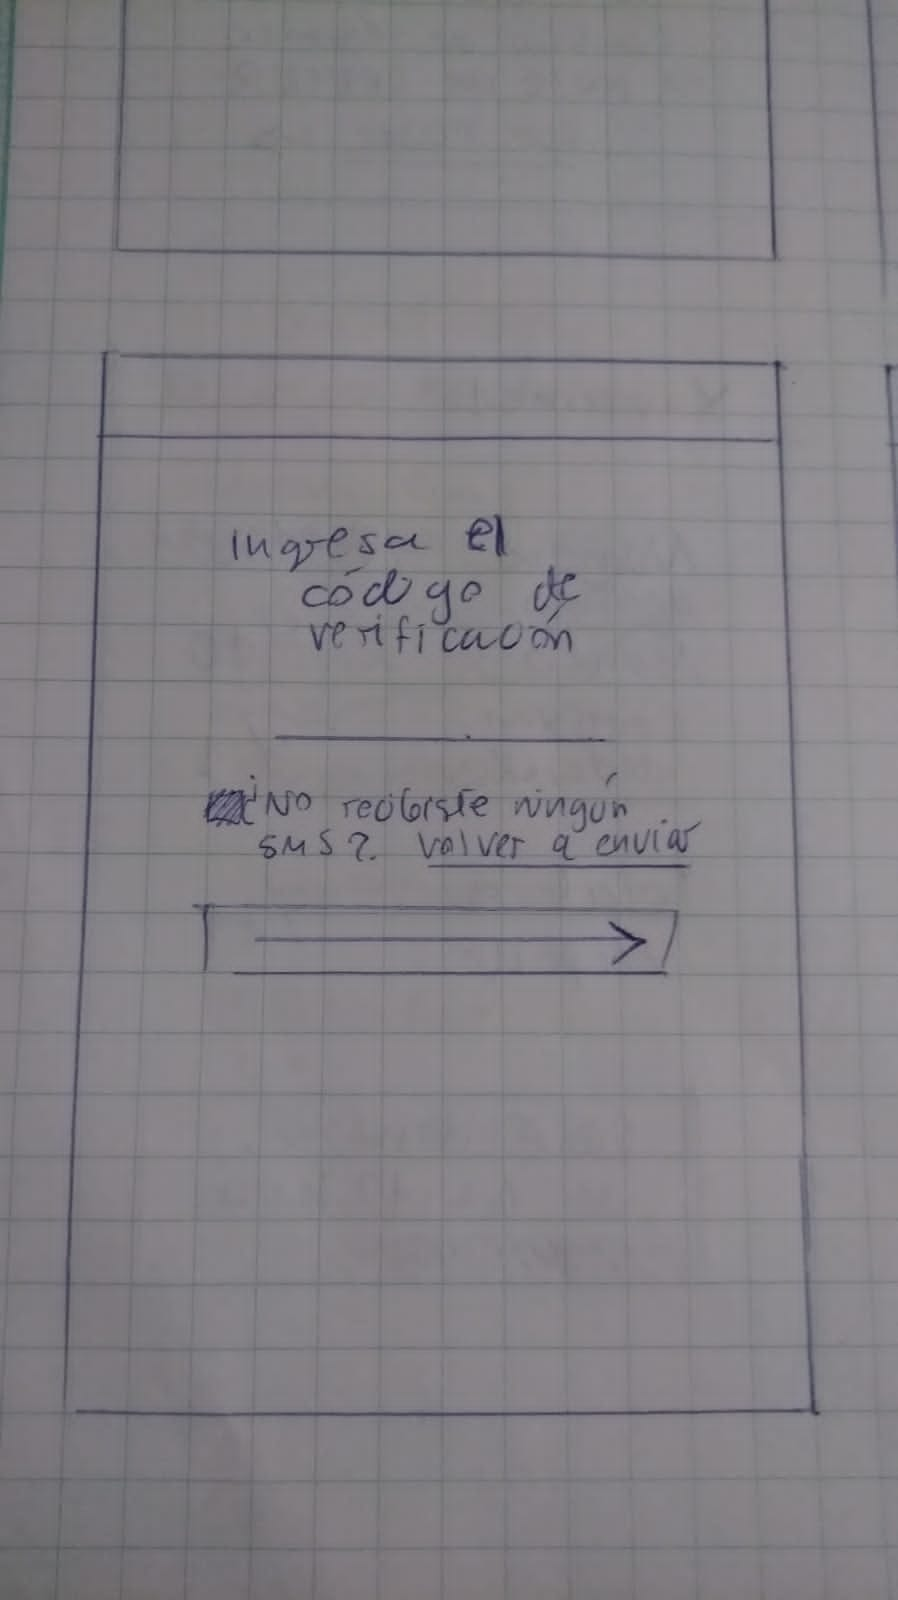 Ingresa el
código de
verificación
¿No recibiste ningún
SMS? volver a enviar